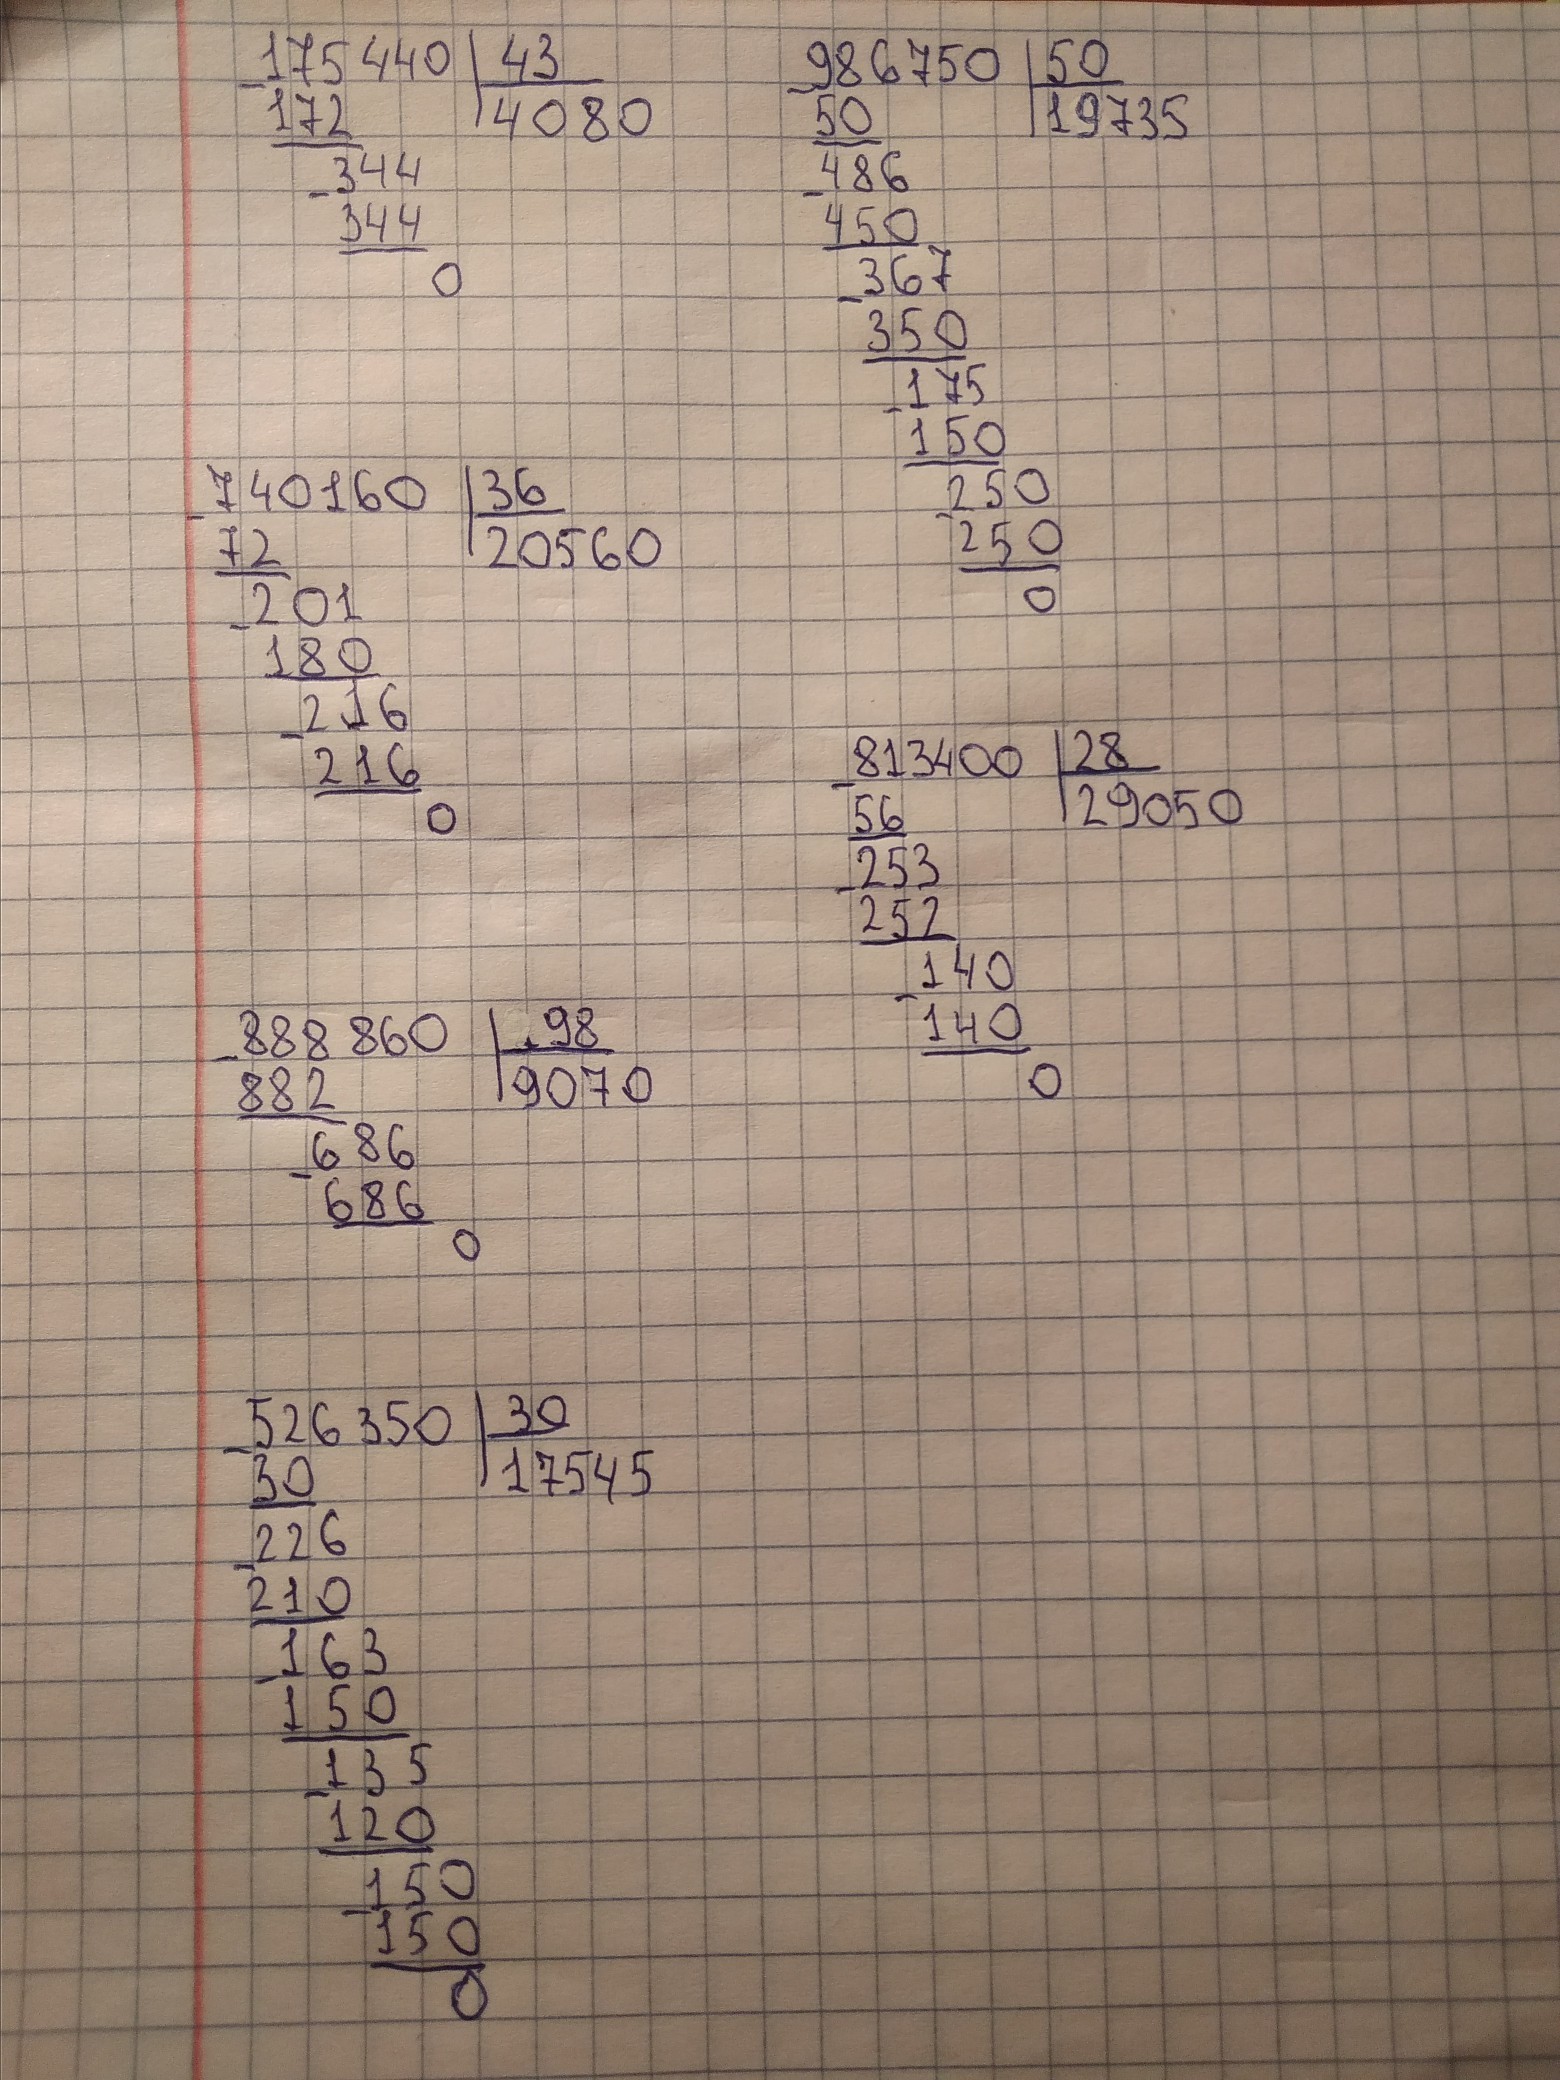 175440 43
172 4080
344
344
0
740160 36
72 20560
201
180
216
216
0
888860 98
882 9070
686
686
0
526350 30
30 17545
226
210
163
150
135
120
150
150
0
986750 50
50 19735
486
450
367
350
175
150
250
250
0
813400 28
56 29050
253
252
140
140
0